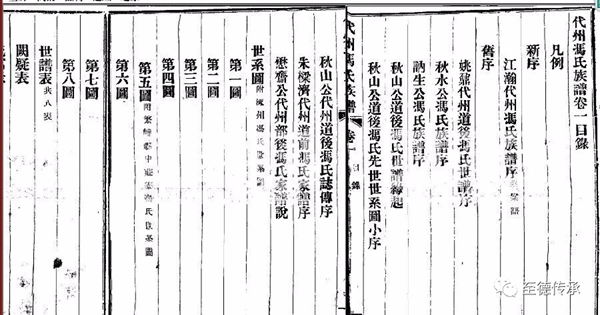 代州馮氏族譜卷一目錄
凡例
新序
江瀚代州馮氏族譜序
舊序
姚鼐代州道後馮氏世譜序
秋水公馮氏族譜序
訥生公馮氏族譜序
秋山公代州道後馮氏世譜緣起
秋山公道後馮氏先世世系圖小序
代州馮氏族譜 卷一 目錄
秋山公代州道後馮氏誌傳序
朱樑濟代州道前馮氏家譜序
懋齋公代州部後馮氏家譜說
世系圖
第一圖
第二圖
第三圖
第四圖
第五圖
第六圖
第七圖
第八圖
世譜表 共八表
闕疑表
至德传承